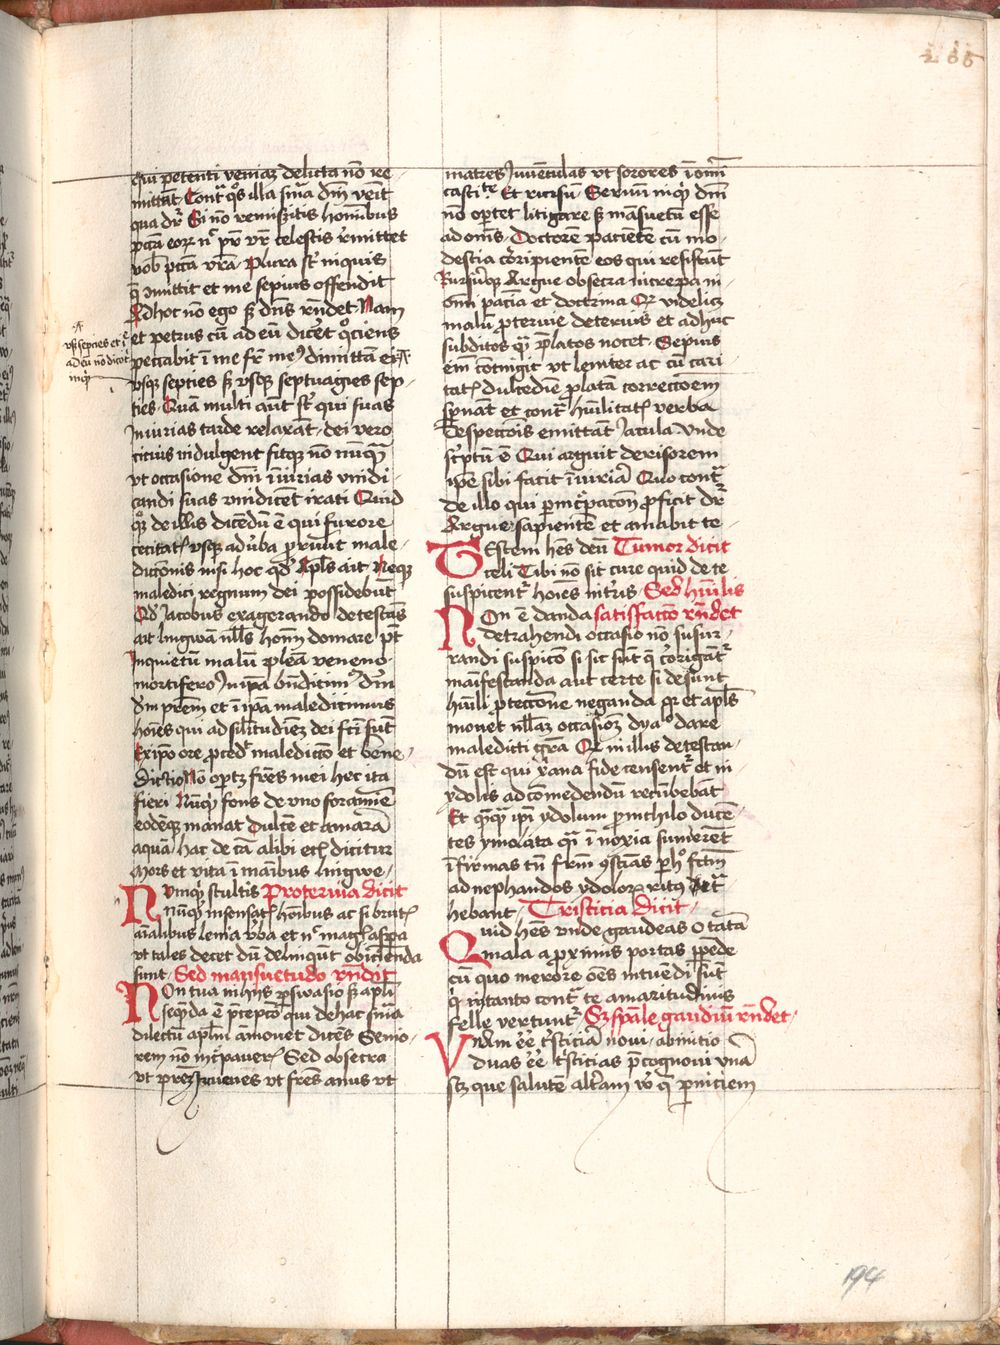 266
qui petenti veniaz delicta nō re-
mittāt Cont^a q^os illa s͞nia dn̄i venit
qua dr̄ Si nō remis̄itis hoīnibus
pctā eorz n^c pr̄ vr̄ celestis remittet
vob̄ pctā vr̄a Plura st̄ inquis
q̄ ōmittit et me sepius offendit
Ad hoc nō ego s̄ dn̄s rn̄det Nam
et petrus cū ad eū dicēt q^ociens
peccabit ī me fr̄ me^9 dimittam ei
vsq̄ septies s̄ vsq̄ septuagies sep-
ties Quā multi aūt st̄ qui suas
Iniurias tarde relaxāt dei vero
citius indulgent sitq̄ nō nūq^a
vt occasione dn̄i iniurias vindi-
candi suas vindicēt irati Quid
q^o de illis dicēdū ē qui furore
cecitat^s vsq̄ ad v̄ba prūūt male-
dictionis nisi hoc qd̄ Apl̄s ait Neq̄
maledici regnum dei possidebūt
Qd̄ Jacobus exagerando detestās
ait lingwā nll̄s hoīm domare pt̄
Inquietū malū plēa veneno
mortifero In ipā bn̄dicim^9 dm̄
dm̄ prēm et ī ipā maledicimus
hoīes qui ad sil̄itudīez dei fc̄ti sūt
Ex ipō ore proced^t maledictō et bene-
dictio Nō optz fr̄es mei hec ita
fieri Nūq^d fons de vno foramīe
eodēq̄ manat dulcē et amarā
aquā hac de cā alibi et^s dicitur
Mors et vita ī maībus lingwe
Nūmq^d stultis Proteruia dicit
nūq^d insensat^s hoībus ac si brut^s
aīalibus lenia v̄ba et n^c mag^s asp̄a
vt tales decet dū delinqūt obicienda
sunt Sed mansuetudo rn̄dit
Non tua in hijs p̄swasio s̄ apl̄i
seq̄nda ē p̄ceptō qui de hac s͞nia
dilectū apl̄m amonet dicēs Senio-
rem nō incᵉpaueris Sed obsecra
vt prēz Juuenes vt fr̄es anus vt
vsq̄ septies et ī
ad eū nō dico t^i
inq^t
matres Juuēculas vt sorores ī omī
casti^te Et rursū Seruū inq^t dn̄i
nō optet litigare s̄ māsuetū esse
ad om̄s Doctorē pacientē cū mo-
destia cōripientē eos qui resistūt
Rursūq̄ Argue obsecra increpa in
omī paciā et doctrina Qr̄ videlicz
malū p̄teruie deterius et adhuc
subditos q^a p̄latos nocet Sepius
eīm cōtingit vt leniter ac cū cari
tat^s dulcedīe p̄latā correctōem
sp̄nāt et cont^a hūilitat^s verba
despectiōis emittāt Jacula Vnde
sc̄ptū ē Qui arguit derisorem
ipē sibi facit iniuriā Quo cont^a
de illo qui p̄ incᵉpacōm p̄ficit dr̄
Argue sapientē et amabit te
Testem hēs deū Tumor dicit
celi Tibi nō sit cure quid de te
suspicent^r hoīes int^ius Sed hūilis
Non ē danda satisfactō rn̄det
detrahendi occasio nō susur-
randi suspicō si sit sūt q̄ corigāt^r
manifestanda aut certe si desunt
hūili p̄tectione neganda qr̄ et apl̄s
monet nll̄az occasioz dya^o dare
maledicti gr̄a Qr̄ in illis detestan-
dū est qui xp̄iana fide censent^r et in
ydolis ad comedendū recūbebāt
Et q^aq^a ipī ydolum p̄ nichilo ducē-
tes ymolata q^i ī noxia sumerēt
īfirmas tn̄ frm̄ 9scias p̄ h^o fc̄m
ad nephandos ydolorz ritus t^a
hebant Tristicia dicit
Quid hēs vnde gaudeas O tātā
mala a p̄ximis portas p̄pede
cū quo merore oēs intuēdi sūt
q^i in tanto cont^a te amaritudinis
felle vertunt^r Sz sp̄ale gaudiū rn̄det
Vndm̄ ēe t^isticiā noui ab inicio
duas ēe t^isticias p̄cognoui vnā
scz que salutē alt^am v^o q̄ p̄niciem
194